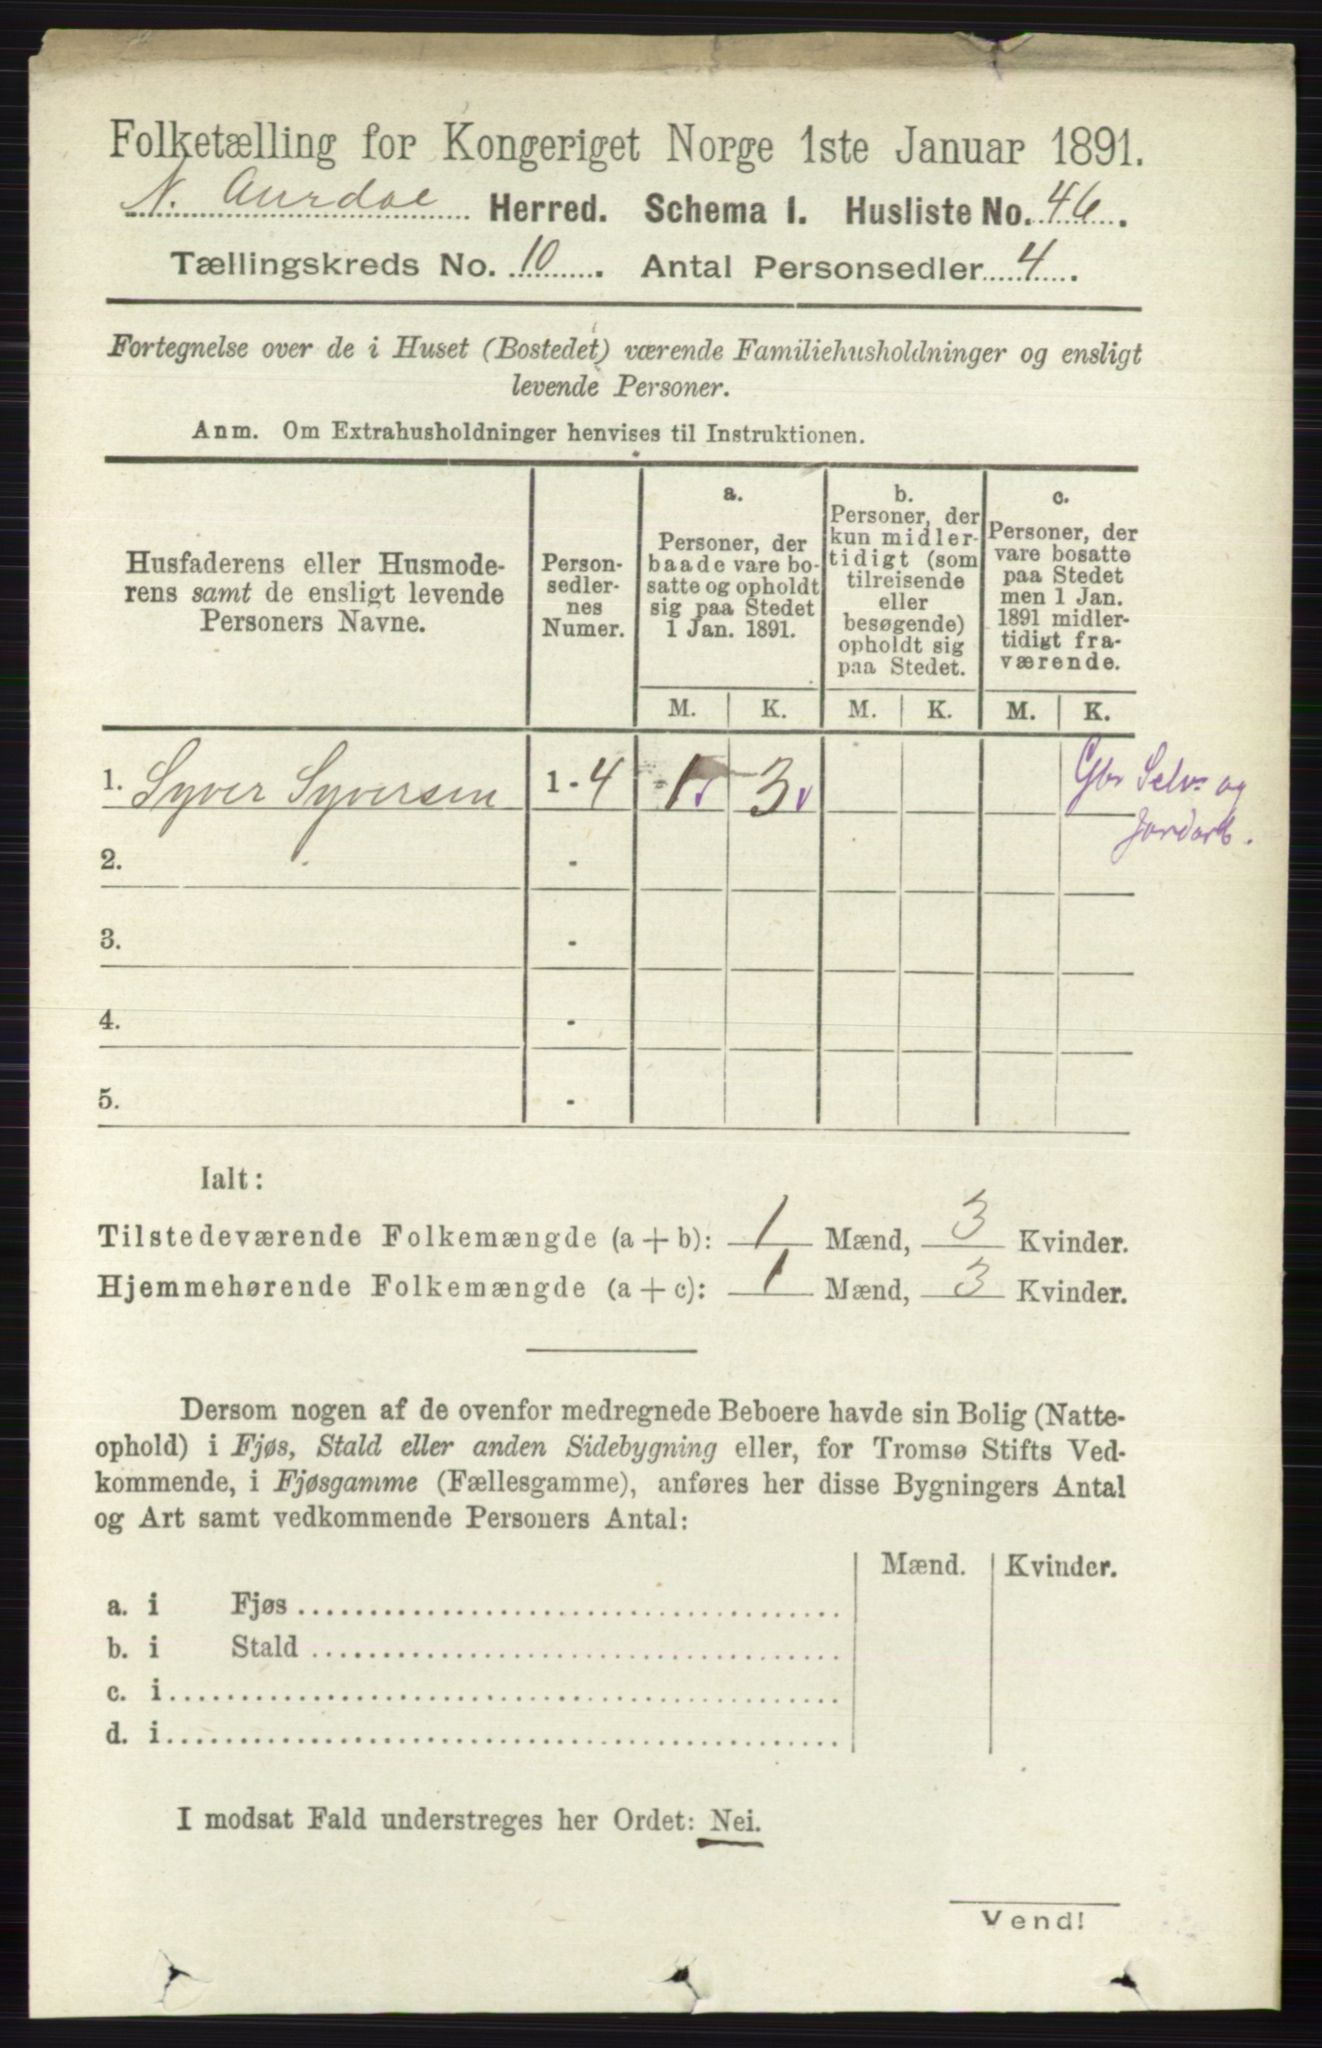 Folketælling for Kongeriget Norge 1ste Januar 1891.
N. Aurdal Herred. Schema I. Husliste No. 46.
Tællingskreds No. 10. Antal Personsedler 4.
Fortegnelse over de i Huset (Bostedet) værende Familiehusholdninger og ensligt
levende Personer.
Anm. Om Extrahusholdninger henvises til Instruktionen.
Husfaderens eller Husmode-
rens samt de ensligt levende
Personers Navne.
Person-
sedler-
nes
Numer.
a.
Personer, der
baade vare bo-
satte og opholdt
sig paa Stedet
1 Jan. 1891.
b.
Personer, der
kun midler-
tidigt (som
tilreisende
eller
besøgende)
opholdt sig
paa Stedet.
c.
Personer, der
vare bosatte
paa Stedet
men 1 Jan.
1891 midler-
tidigt fra-
værende.
M. K. M. K. M. K.
1. Syver Syversen 1 - 4 1 3 Gbr Selv og
Jordarb.
2. -
3. -
4. -
5. -
Ialt:
Tilstedeværende Folkemængde (a + b): 1 Mænd, 3 Kvinder.
Hjemmehørende Folkemængde (a + c): 1 Mænd, 3 Kvinder.
Dersom nogen af de ovenfor medregnede Beboere havde sin Bolig (Natte-
ophold) i Fjøs, Stald eller anden Sidebygning eller, for Tromsø Stifts Ved-
kommende, i Fjøsgamme (Fællesgamme), anføres her disse Bygningers Antal
og Art samt vedkommende Personers Antal:
Mænd. Kvinder.
a. i Fjøs
b. i Stald
c. i
d. i
I modsat Fald understreges her Ordet: Nei.
Vend!